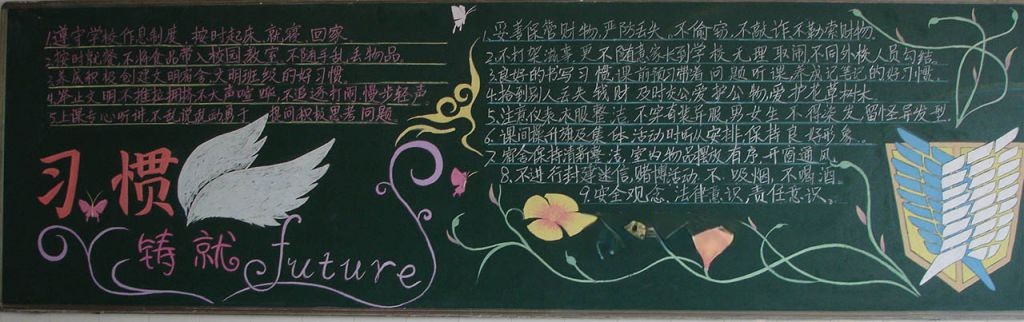 1遵守学校作息制度、按时起床、就寝、回家.
2按时就餐、不将食品带入校园教室、不随手乱丢物品.
3养成积极创建文明宿舍、文明班级的好习惯.
4举止文明、不推拉拥挤、不大声喧哗、不追逐打闹、慢步轻声.
5上课专心听讲、不乱说乱动 提问积极思考问题
习惯
铸就
future
1.妥善保管财物,严防丢失。不偷窃,不敲诈不勒索财物.
2.不打架滋事,更不随意家长到学校无理取闹,不同外校人员勾结.
3.良好的书写习惯,课前预习带着问题听课,养成记笔记的好习惯.
4.拾到别人丢失钱财及时交公,爱护公物,爱护花草树木.
5.注意仪表,衣服整洁,不穿奇装异服,男女生不得染发,留怪异发型.
6.课间操升旗及集体活动时听从安排,保持良好形象。
7.宿舍保持清新整洁,室内物品摆放有序,开窗通风.
8.不进行封建迷信,赌博活动,不吸烟,不喝酒.
9.安全观念、法律意识,责任意识。